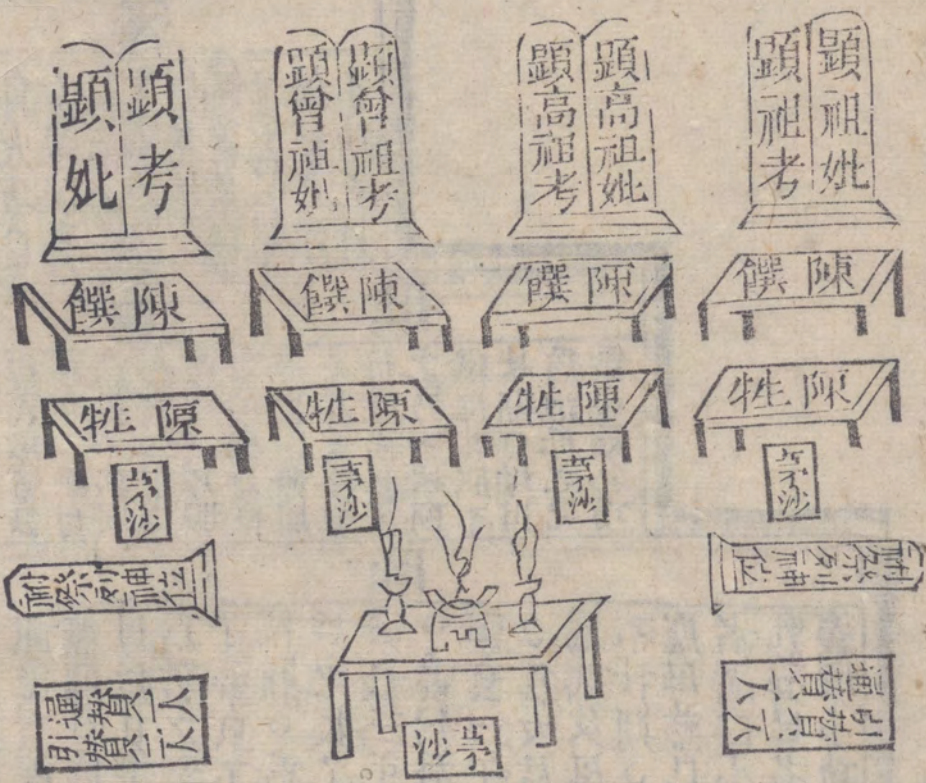 顯祖妣
顯祖考
顯高祖妣
顯高祖考
顯曾祖考
顯曾祖妣
顯考
顯妣
陳饌
陳饌
陳饌
陳饌
陳牲
陳牲
陳牲
陳牲
茅沙
茅沙
茅沙
茅沙
祔祭列神位
祔祭列神位
引贊一人
通贊一人
茅沙
通贊一人
引贊一人